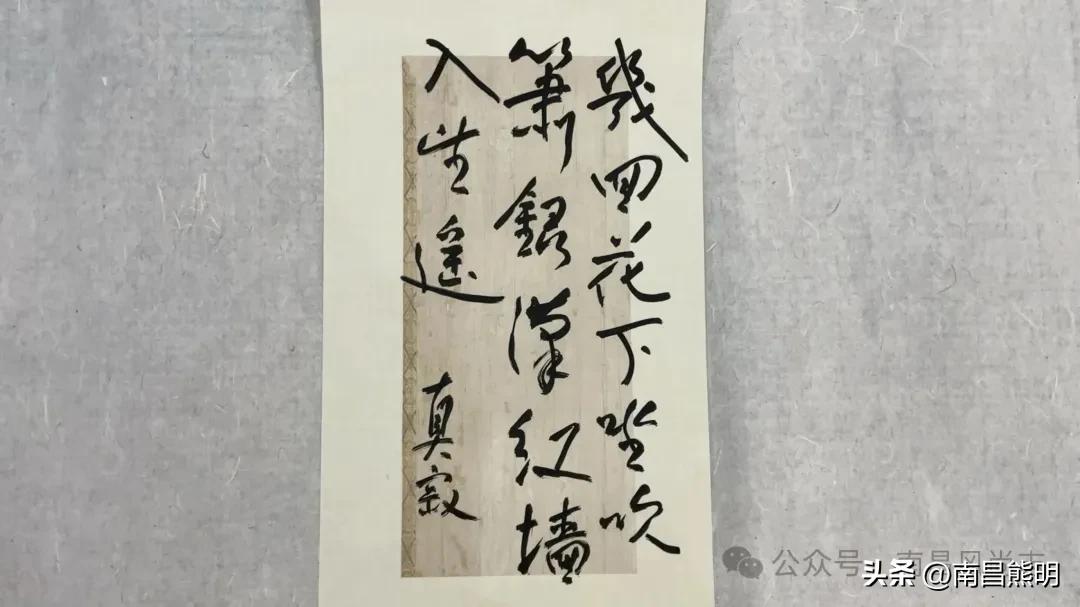 幾回花下坐吹
簫銀漢紅墻
入望遥
真寂
公众号 南昌风尚
头条 @南昌熊明